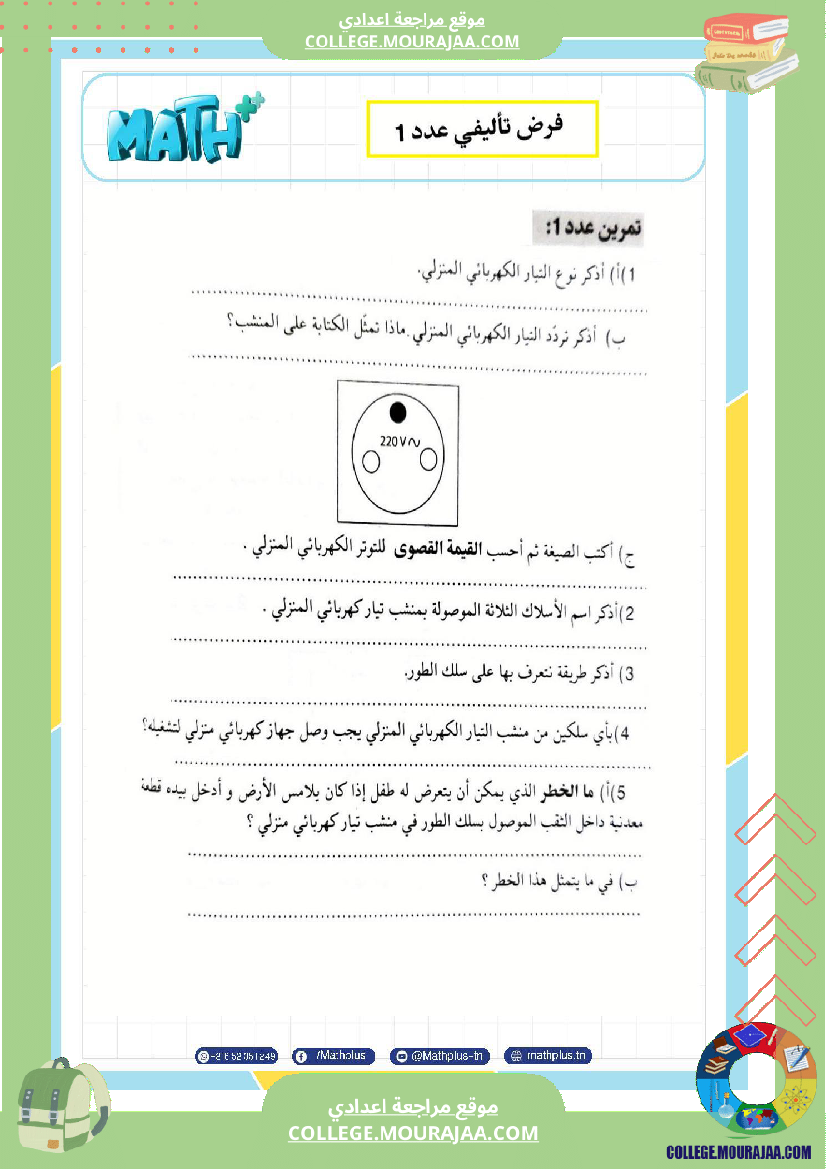 موقع مراجعة اعدادي
COLLEGE.MOURAJAA.COM
MATH
فرض تأليفي عدد 1
تمرين عدد 1:
1)أ) أذكر نوع التيار الكهربائي المنزلي.
ب) أذكر تردّد التيار الكهربائي المنزلي.ماذا تمثّل الكتابة على المنشب؟
220 V ~
ج) أكتب الصيغة ثم أحسب القيمة القصوى للتوتر الكهربائي المنزلي .
2)أذكر اسم الأسلاك الثلاثة الموصولة بمنشب تيار كهربائي المنزلي .
3) أذكر طريقة نتعرف بها على سلك الطور.
4)بأي سلكين من منشب التيار الكهربائي المنزلي يجب وصل جهاز كهربائي منزلي لتشغيله؟
5)أ) ما الخطر الذي يمكن أن يتعرض له طفل إذا كان يلامس الأرض و أدخل بيده قطعة
معدنية داخل الثقب الموصول بسلك الطور في منشب تيار كهربائي منزلي ؟
ب) في ما يتمثل هذا الخطر ؟
/Mathplus
@Mathplus-tn
mathplus.tn
موقع مراجعة اعدادي
COLLEGE.MOURAJAA.COM
COLLEGE.MOURAJAA.COM